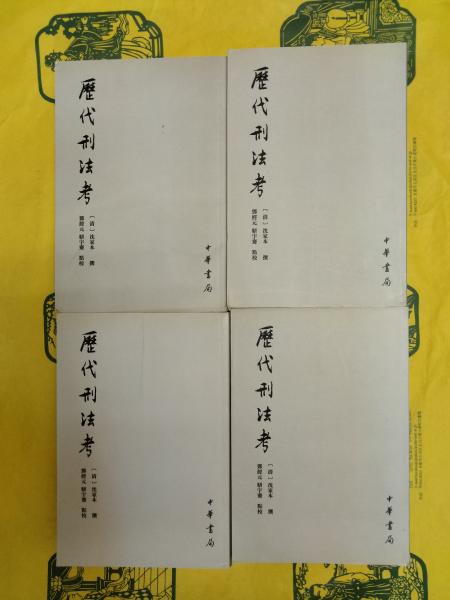 歷代刑法考
〔清〕沈家本 撰
鄧經元 駢宇騫 點校
中華書局
歷代刑法考
〔清〕沈家本 撰
鄧經元 駢宇騫 點校
中華書局
歷代刑法考
〔清〕沈家本 撰
鄧經元 駢宇騫 點校
中華書局
歷代刑法考
〔清〕沈家本 撰
鄧經元 駢宇騫 點校
中華書局